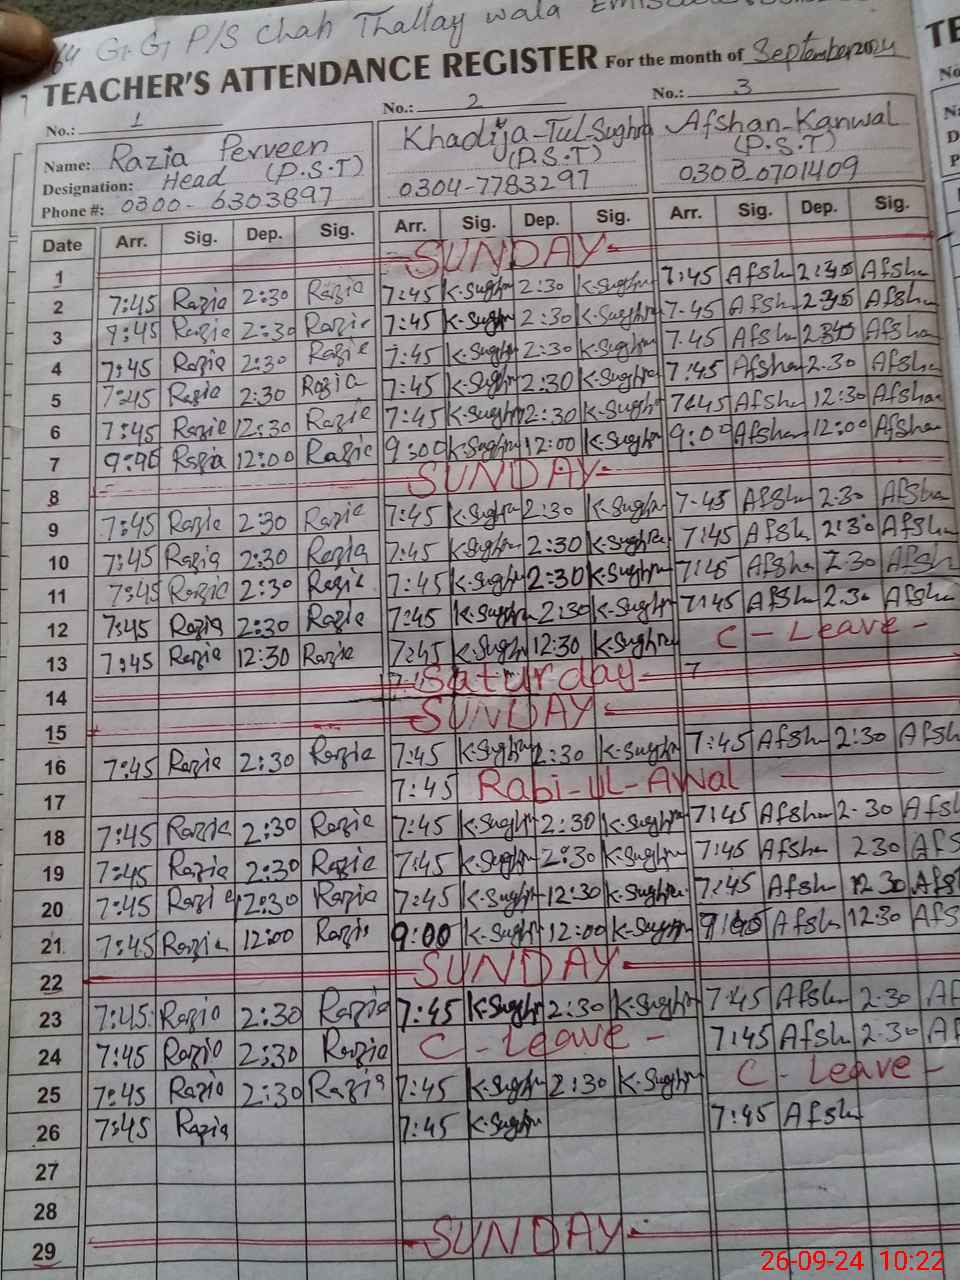 G.G P/S Chah Thallay wala
TEACHER'S ATTENDANCE REGISTER For the month of September 2024
No.: 1 No.: 2 No.: 3
Name: Razia Perveen Khadija-Tul-Sughra Afshan-Kanwal
Designation: Head (P.S.T) (P.S.T) (P.S.T)
Phone #: 0300-6303897 0304-7783297 0308-0701409
Date Arr. Sig. Dep. Sig. Arr. Sig. Dep. Sig. Arr. Sig. Dep. Sig.
1 SUNDAY
2 7:45 Razia 2:30 Razia 7:45 K-Sughra 2:30 K-Sughra 7:45 Afsha Afsha
3 Razia 2:30 Razia 7:45 K-Sughra 2:30 K-Sughra 7:45 Afsha Afsha
4 7:45 Razia 2:30 Razia 7:45 K-Sughra 2:30 K-Sughra 7:45 Afsha Afsha
5 7:45 Razia 2:30 Razia 7:45 K-Sughra 2:30 K-Sughra 7:45 Afsha 2:30 Afsha
6 7:45 Razia 12:30 Razia 7:45 K-Sughra 12:30 K-Sughra 7:45 Afsha 12:30 Afsha
7 Razia 12:00 Razia 9:00 K-Sughra 12:00 K-Sughra 9:00 Afsha 12:00 Afsha
8 SUNDAY
9 7:45 Razia 2:30 Razia 7:45 K-Sughra 2:30 K-Sughra 7:45 Afsha 2:30 Afsha
10 7:45 Razia 2:30 Razia 7:45 K-Sughra 2:30 K-Sughra 7:45 Afsha 2:30 Afsha
11 7:45 Razia 2:30 Razia 7:45 K-Sughra 2:30 K-Sughra 7:45 Afsha 2:30 Afsha
12 7:45 Razia 2:30 Razia 7:45 K-Sughra 2:30 K-Sughra 7:45 Afsha 2:30 Afsha
13 7:45 Razia 12:30 Razia 7:45 K-Sughra 12:30 K-Sughra C - Leave -
14 Saturday 7
15 SUNDAY
16 7:45 Razia 2:30 Razia 7:45 K-Sughra 2:30 K-Sughra 7:45 Afsha 2:30 Afsh
17 7:45 Rabi-ul-Awal
18 7:45 Razia 2:30 Razia 7:45 K-Sughra 2:30 K-Sughra 7:45 Afsha 2:30 Afsh
19 7:45 Razia 2:30 Razia 7:45 K-Sughra 2:30 K-Sughra 7:45 Afsha 2 30 Afs
20 7:45 Razia 12:30 Razia 7:45 K-Sughra 12:30 K-Sughra 7:45 Afsha 12 30 Afs
21 7:45 Razia 12:00 Razia 9:00 K-Sughra 12:00 K-Sughra Afsha 12:30 Afs
22 SUNDAY
23 7:45 Razia 2:30 Razia 7:45 K-Sughra 2:30 K-Sughra 7:45 Afsha 2:30 Af
24 7:45 Razia 2:30 Razia C - Leave - 7:45 Afsha 2:30 Af
25 7:45 Razia 2:30 Razia 7:45 K-Sughra 2:30 K-Sughra C - Leave -
26 7:45 Razia 7:45 K-Sughra 7:45 Afsha
27
28
29 SUNDAY
26-09-24 10:22